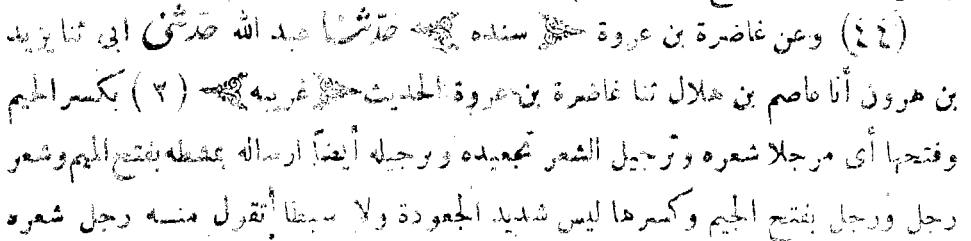 (٤٤) وعن غاضرة بن عروة ﴿ سنده ﴾ حدثنا عبد الله حدثنى ابى ثنا يزيد
بن هرون أنا عاصم بن هلال ثنا غاضرة بن عروة الحديث ﴿ غريبه ﴾ (٢) بكسر الجيم
وفتحها أى مرجلا شعره وترجيل الشعر تجعيده وترجيله أيضاً ارساله بمشطه بفتح الميم وشعر
رجل ورجل بفتح الجيم وكسرها ليس شديد الجعودة ولا سبطا تقول منه رجل شعره